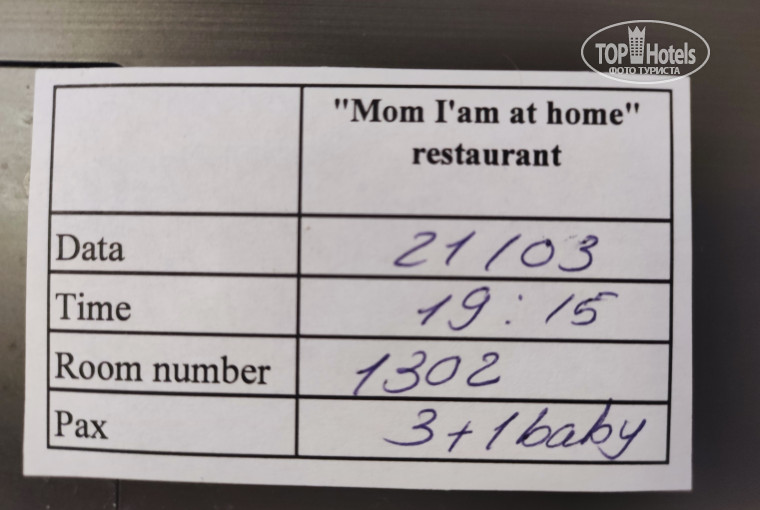 TOP Hotels
ФОТО ТУРИСТА
"Mom I'am at home"
restaurant
Data 21/03
Time 19:15
Room number 1302
Pax 3+1baby